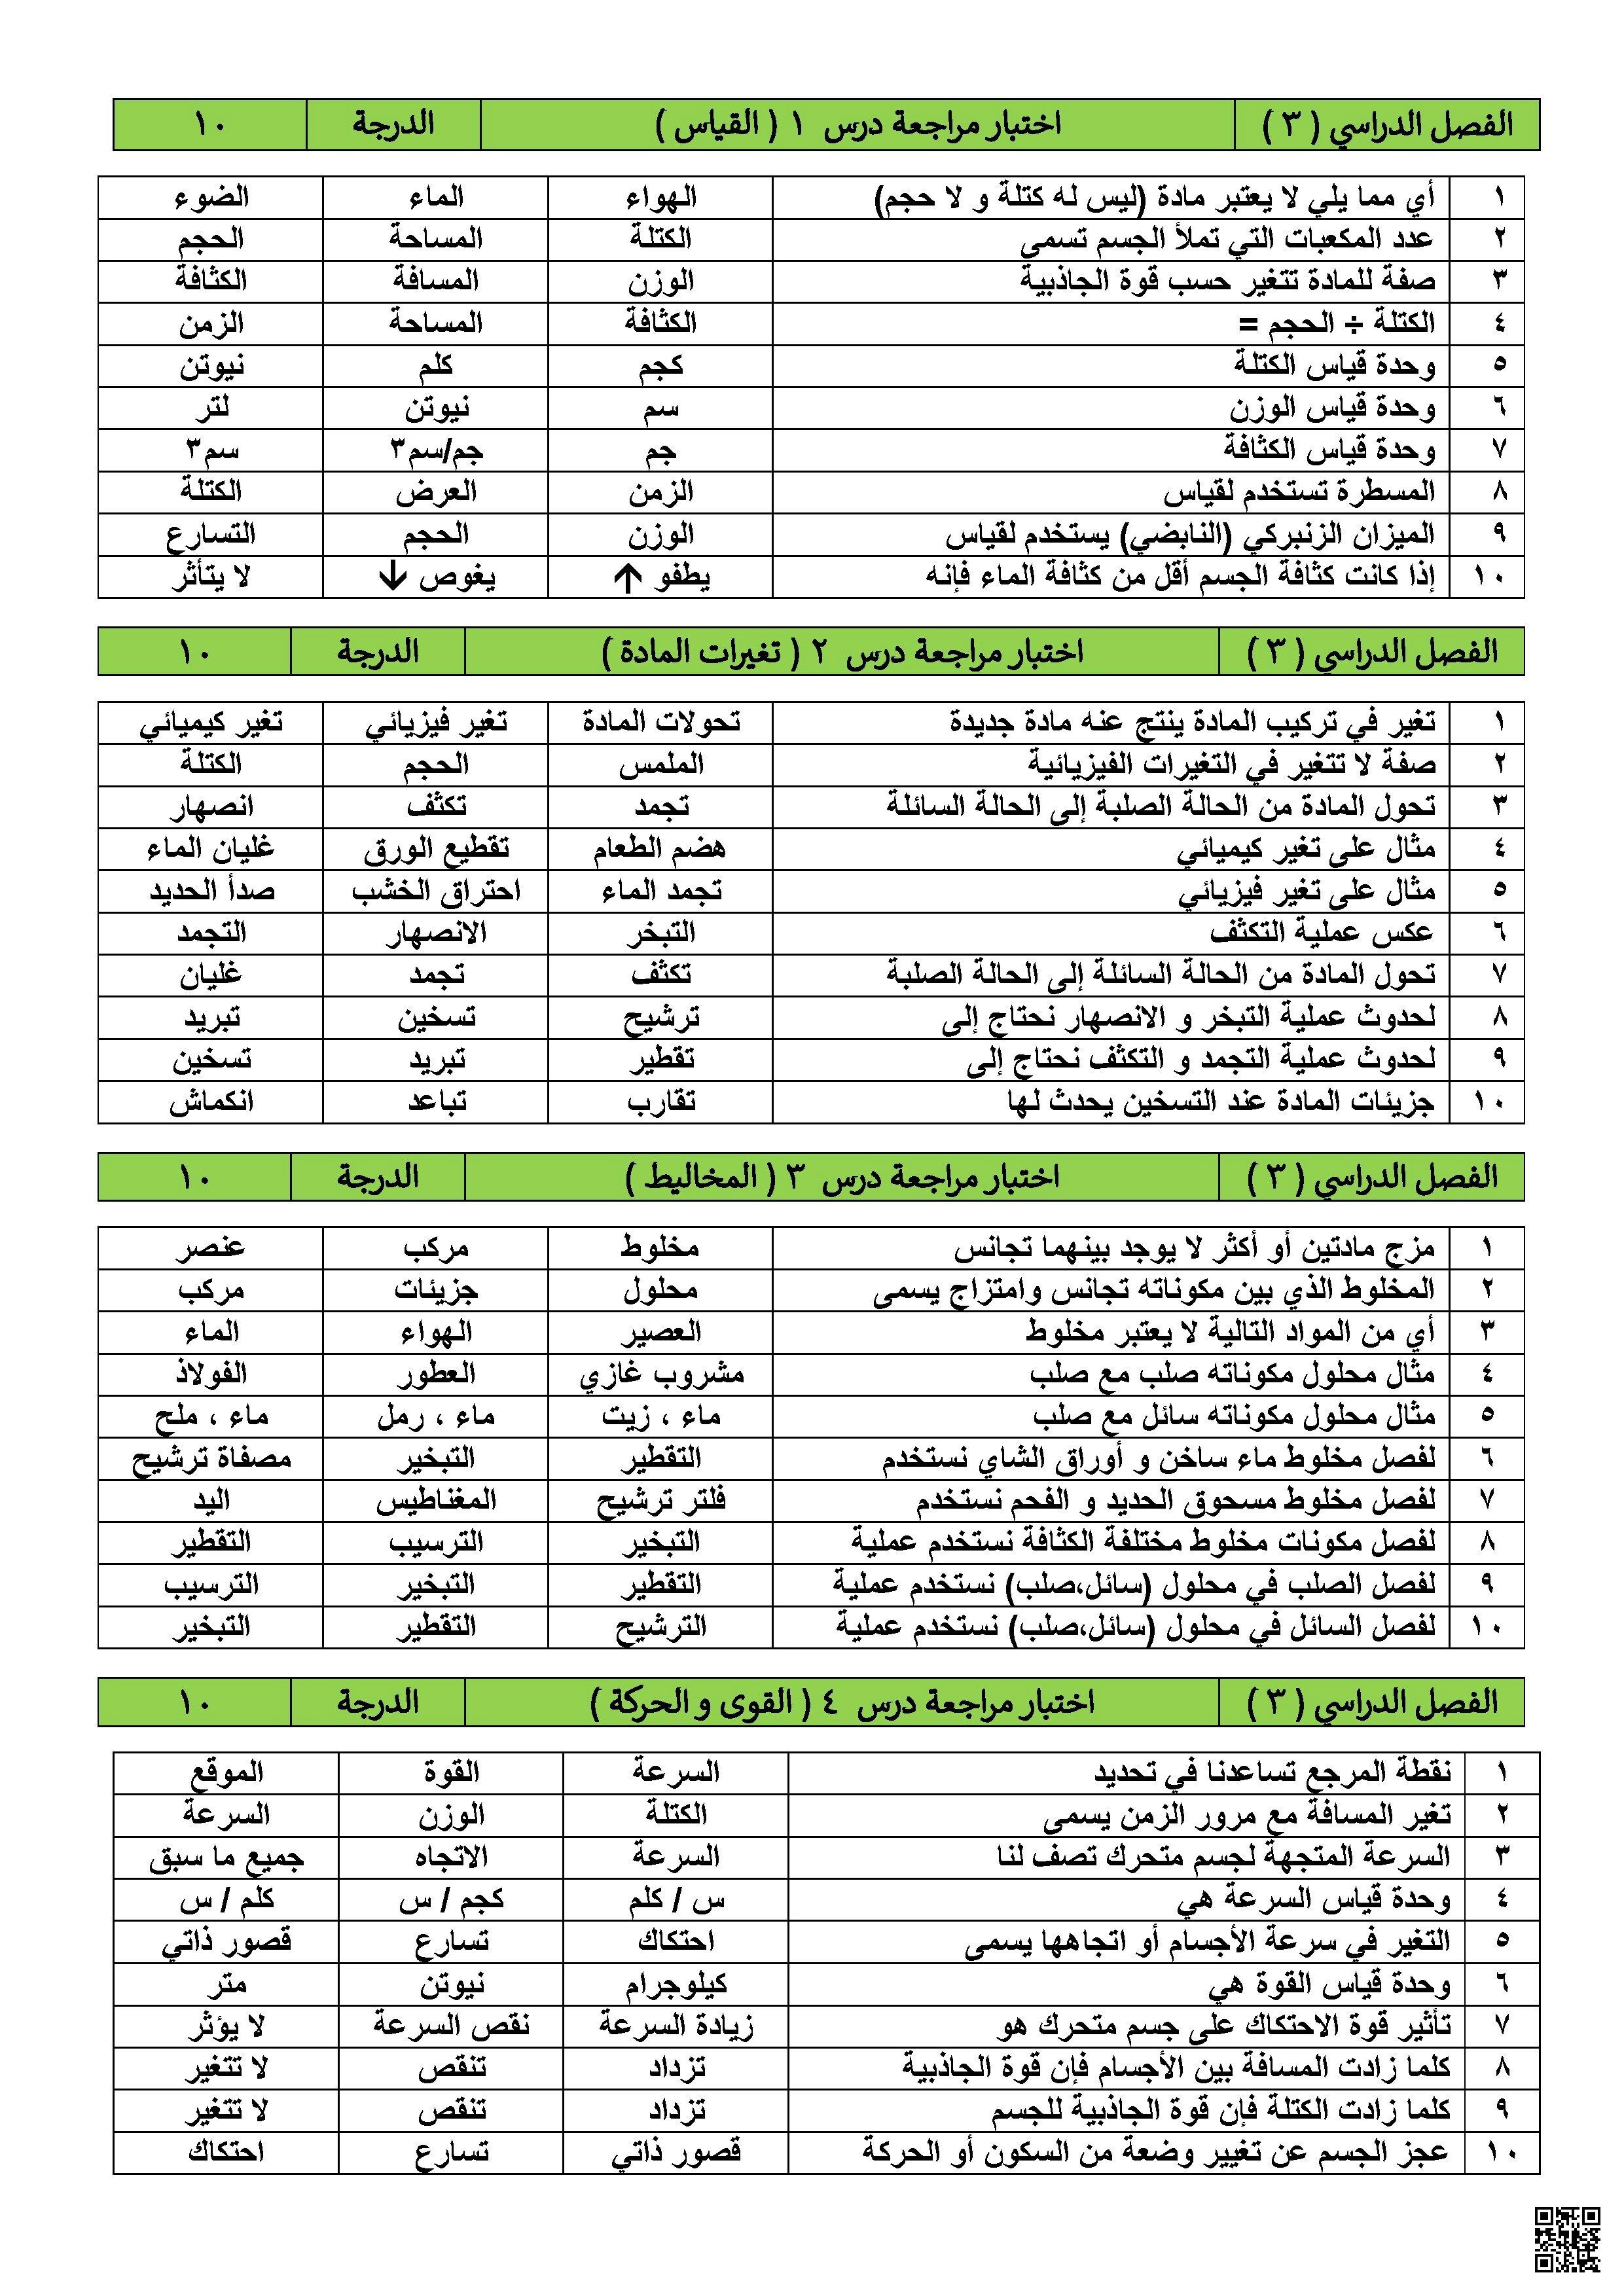 الفصل الدراسي ( ٣ ) اختبار مراجعة درس ١ ( القياس ) الدرجة ١٠
١ أي مما يلي لا يعتبر مادة (ليس له كتلة و لا حجم) الهواء الماء الضوء
٢ عدد المكعبات التي تملأ الجسم تسمى الكتلة المساحة الحجم
٣ صفة للمادة تتغير حسب قوة الجاذبية الوزن المسافة الكثافة
٤ الكتلة ÷ الحجم = الكثافة المساحة الزمن
٥ وحدة قياس الكتلة كجم كلم نيوتن
٦ وحدة قياس الوزن سم نيوتن لتر
٧ وحدة قياس الكثافة جم جم/سم٣ سم٣
٨ المسطرة تستخدم لقياس الزمن العرض الكتلة
٩ الميزان الزنبركي (النابضي) يستخدم لقياس الوزن الحجم التسارع
١٠ إذا كانت كثافة الجسم أقل من كثافة الماء فإنه يطفو ↑ يغوص ↓ لا يتأثر
الفصل الدراسي ( ٣ ) اختبار مراجعة درس ٢ ( تغيرات المادة ) الدرجة ١٠
١ تغير في تركيب المادة ينتج عنه مادة جديدة تحولات المادة تغير فيزيائي تغير كيميائي
٢ صفة لا تتغير في التغيرات الفيزيائية الملمس الحجم الكتلة
٣ تحول المادة من الحالة الصلبة إلى الحالة السائلة تجمد تكثف انصهار
٤ مثال على تغير كيميائي هضم الطعام تقطيع الورق غليان الماء
٥ مثال على تغير فيزيائي تجمد الماء احتراق الخشب صدأ الحديد
٦ عكس عملية التكثف التبخر الانصهار التجمد
٧ تحول المادة من الحالة السائلة إلى الحالة الصلبة تكثف تجمد غليان
٨ لحدوث عملية التبخر و الانصهار نحتاج إلى ترشيح تسخين تبريد
٩ لحدوث عملية التجمد و التكثف نحتاج إلى تقطير تبريد تسخين
١٠ جزيئات المادة عند التسخين يحدث لها تقارب تباعد انكماش
الفصل الدراسي ( ٣ ) اختبار مراجعة درس ٣ ( المخاليط ) الدرجة ١٠
١ مزج مادتين أو أكثر لا يوجد بينهما تجانس مخلوط مركب عنصر
٢ المخلوط الذي بين مكوناته تجانس وامتزاج يسمى محلول جزيئات مركب
٣ أي من المواد التالية لا يعتبر مخلوط العصير الهواء الماء
٤ مثال محلول مكوناته صلب مع صلب مشروب غازي العطور الفولاذ
٥ مثال محلول مكوناته سائل مع صلب ماء ، زيت ماء ، رمل ماء ، ملح
٦ لفصل مخلوط ماء ساخن و أوراق الشاي نستخدم التقطير التبخير مصفاة ترشيح
٧ لفصل مخلوط مسحوق الحديد و الفحم نستخدم فلتر ترشيح المغناطيس اليد
٨ لفصل مكونات مخلوط مختلفة الكثافة نستخدم عملية التبخير الترسيب التقطير
٩ لفصل الصلب في محلول (سائل،صلب) نستخدم عملية التقطير التبخير الترسيب
١٠ لفصل السائل في محلول (سائل،صلب) نستخدم عملية الترشيح التقطير التبخير
الفصل الدراسي ( ٣ ) اختبار مراجعة درس ٤ ( القوى و الحركة ) الدرجة ١٠
١ نقطة المرجع تساعدنا في تحديد السرعة القوة الموقع
٢ تغير المسافة مع مرور الزمن يسمى الكتلة الوزن السرعة
٣ السرعة المتجهة لجسم متحرك تصف لنا السرعة الاتجاه جميع ما سبق
٤ وحدة قياس السرعة هي س / كلم كجم / س كلم / س
٥ التغير في سرعة الأجسام أو اتجاهها يسمى احتكاك تسارع قصور ذاتي
٦ وحدة قياس القوة هي كيلوجرام نيوتن متر
٧ تأثير قوة الاحتكاك على جسم متحرك هو زيادة السرعة نقص السرعة لا يؤثر
٨ كلما زادت المسافة بين الأجسام فإن قوة الجاذبية تزداد تنقص لا تتغير
٩ كلما زادت الكتلة فإن قوة الجاذبية للجسم تزداد تنقص لا تتغير
١٠ عجز الجسم عن تغيير وضعة من السكون أو الحركة قصور ذاتي تسارع احتكاك